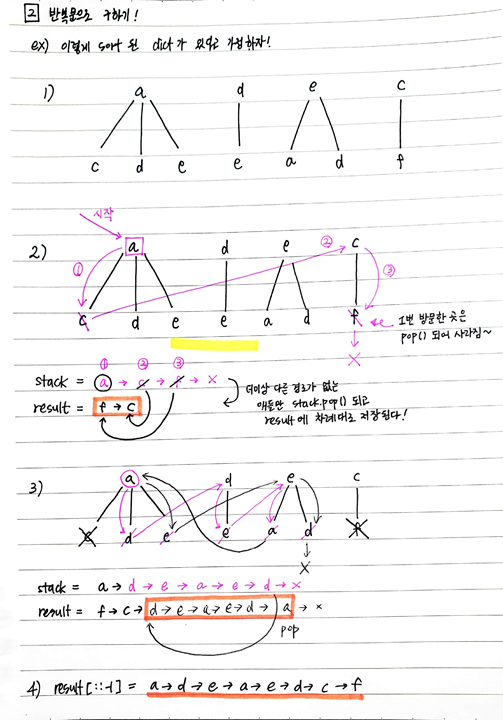 2 반복문으로 구하기!
ex) 이렇게 sort 된 dict가 있다고 가정하자!
1)
a d e c
c d e e a d f
2)
시작
a d e ② c
① ③
c d e e a d f
1번 방문한 곳은
pop() 되어 사라짐~
x
① ② ③
stack = a → c → f → x
result = f → c
더이상 다른 경로가 없는
애들만 stack.pop() 되고
result에 차례대로 저장된다!
3)
a d e c
c d e e a d f
x
stack = a → d → e → a → e → d → x
result = f → c → d → e → a → e → d → a → x
pop
4) result[::-1] = a → d → e → a → e → d → c → f